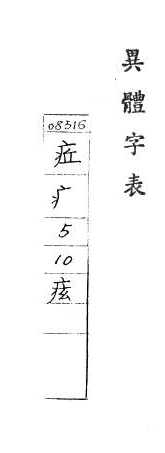 異體字表
08516
症
疒
5
10
痃